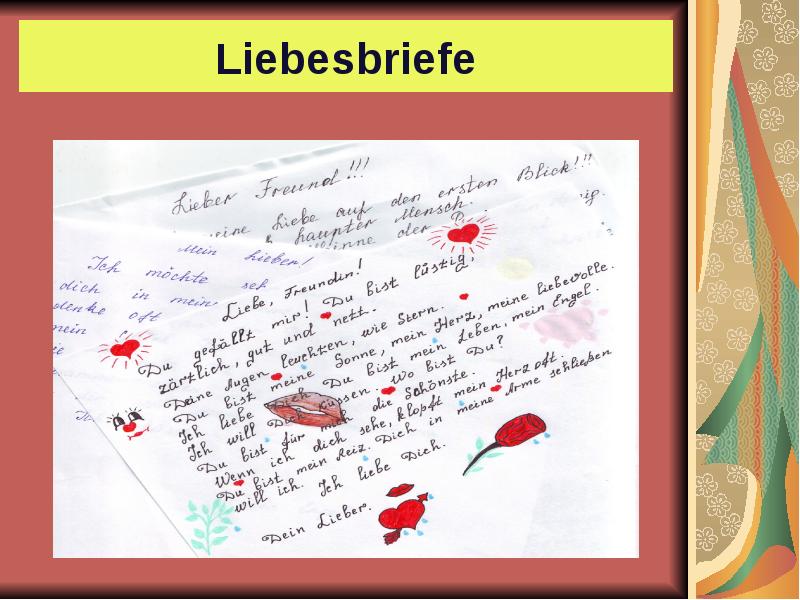 Liebesbriefe
Lieber Freund!!!
meine Liebe auf den ersten Blick!!!
haupter Mensch.
Sinne der
Mein lieber!
Ich möchte seh
dich in mein
denke oft
mein
Liebe, Freundin!
Du gefällt mir! Du bist lüstig,
zärtlich, gut und nett.
Deine Augen leuchten, wie Stern.
Du bist meine Sonne, mein Herz, meine liebevolle.
Ich liebe Dich Du bist mein Leben, mein Engel.
Ich will Dich küssen. Wo bist Du?
Du bist für mich die Schönste.
Wenn ich dich sehe, klopft mein Herz oft.
Du bist mein Reiz. Dich in meine Arme schließen
will ich. Ich liebe Dich.
Dein Lieber.